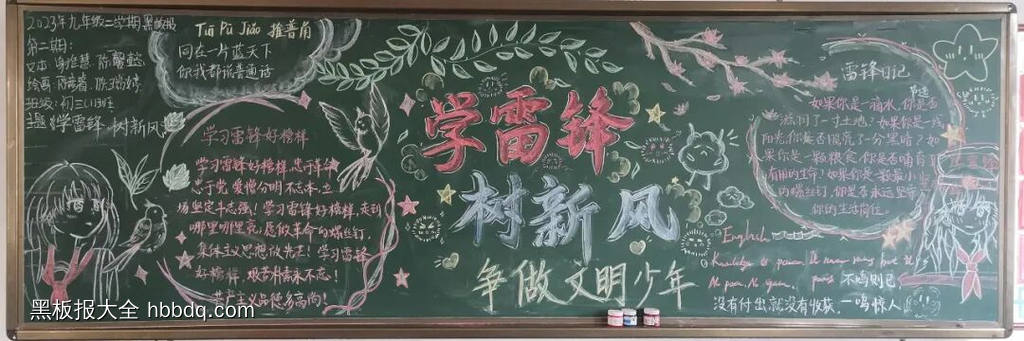 2023年九年级二学期黑板报
第二期:
班级:初三(1)班
主题:学雷锋 树新风
Tuī Pǔ Jiǎo 推普角
同在一片蓝天下
你我都说普通话
学习雷锋好榜样
学习雷锋好榜样,忠于革命
忠于党,爱憎分明不忘本,立
场坚定斗志强!学习雷锋好榜样,走到
哪里哪里亮,愿做革命的螺丝钉
集体主义思想放光芒!学习雷锋
好榜样,艰苦朴素永不忘!
共产主义品德多高尚!
学雷锋
树新风
争做文明少年
雷锋日记
节选
如果你是一滴水,你是否
滋润了一寸土地?如果你是一线
阳光,你是否照亮了一分黑暗?如
果你是一颗粮食,你是否哺育了
有用的生命?如果你是一颗最小
的螺丝钉,你是否永远坚守
你的生活岗位
English
Knowledge is power.
No pain, No gain.
不鸣则已
没有付出就没有收获. 一鸣惊人
黑板报大全 hbbdq.com